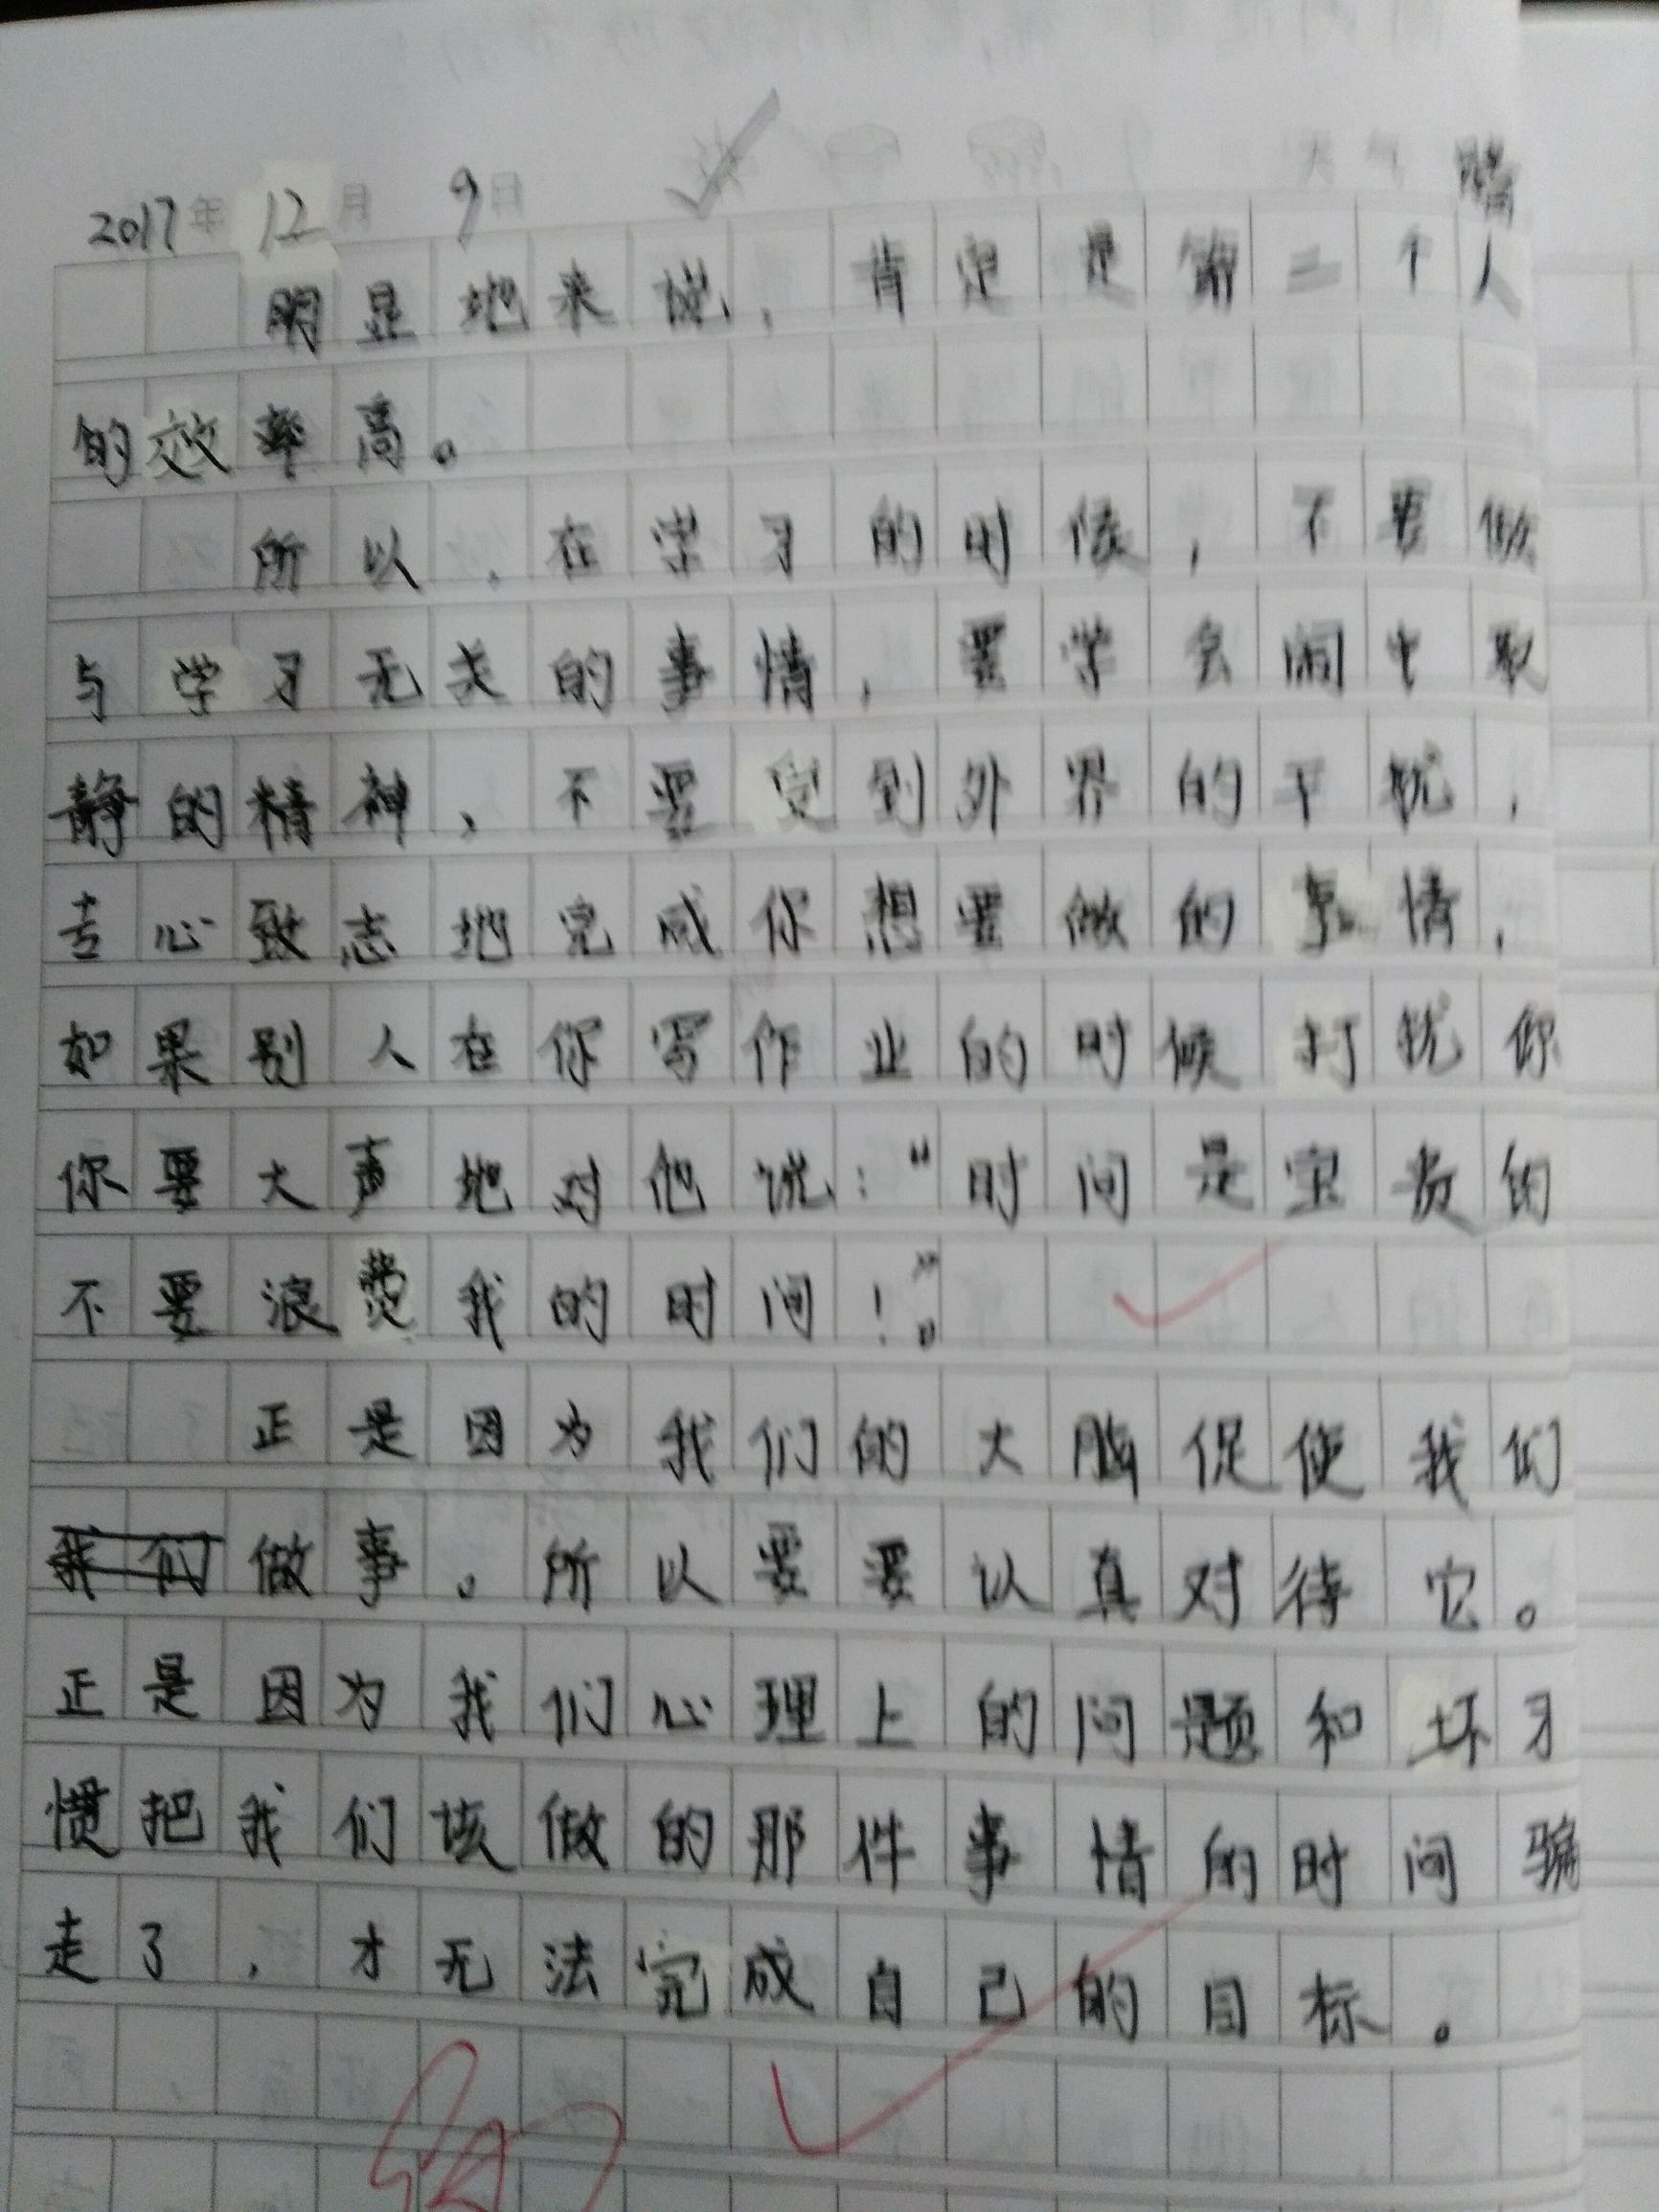 2017年12月9日 晴
明显地来说，肯定是第二个人
的效率高。
所以，在学习的时候，不要做
与学习无关的事情，要学会闹中取
静的精神，不要受到外界的干扰，
专心致志地完成你想要做的事情，
如果别人在你写作业的时候打扰你
你要大声地对他说：“时间是宝贵的
不要浪费我的时间！”。
正是因为我们的大脑促使我们
我们做事。所以要要认真对待它。
正是因为我们心理上的问题和坏习
惯把我们该做的那件事情的时间骗
走了，才无法完成自己的目标。